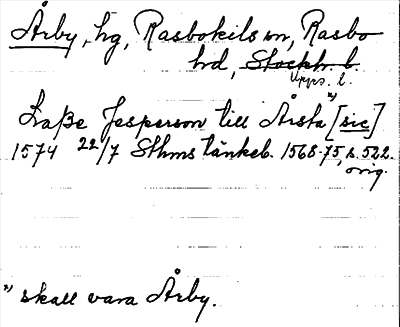 Årby, hg, Rasbokils sn, Rasbo
hd, Stockh. l.
Upps. l.
Laße Jesperson till Årsta *) [sic]
1574 22/7 Sthms tänkeb. 1568-75, s. 522.
orig.
*) skall vara Årby.